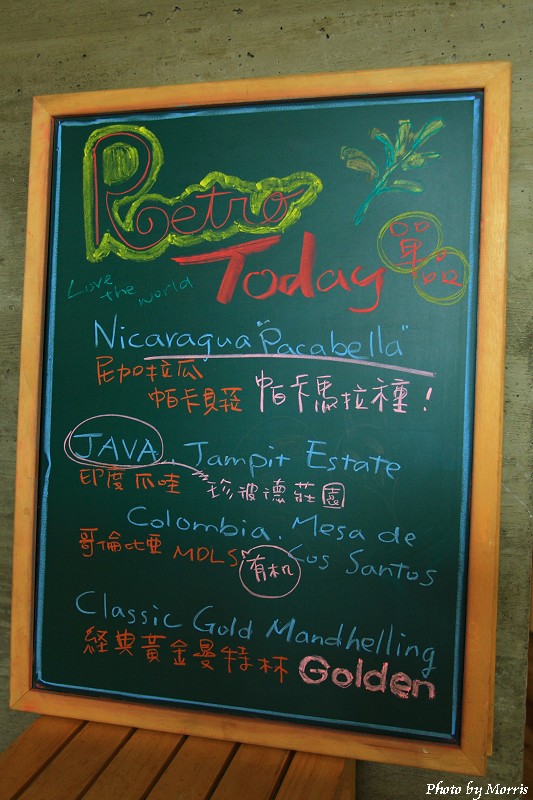 Retro
Today
單品
Love the world
Nicaragua "Pacabella"
尼加拉瓜
帕卡貝菈 帕卡馬拉種!
JAVA. Jampit Estate
印度爪哇 珍彼德莊園
Colombia. Mesa de
哥倫比亞 MDLS 有机 Los Santos
Classic Gold Mandhelling
経典黃金曼特林 Golden
Photo by Morris